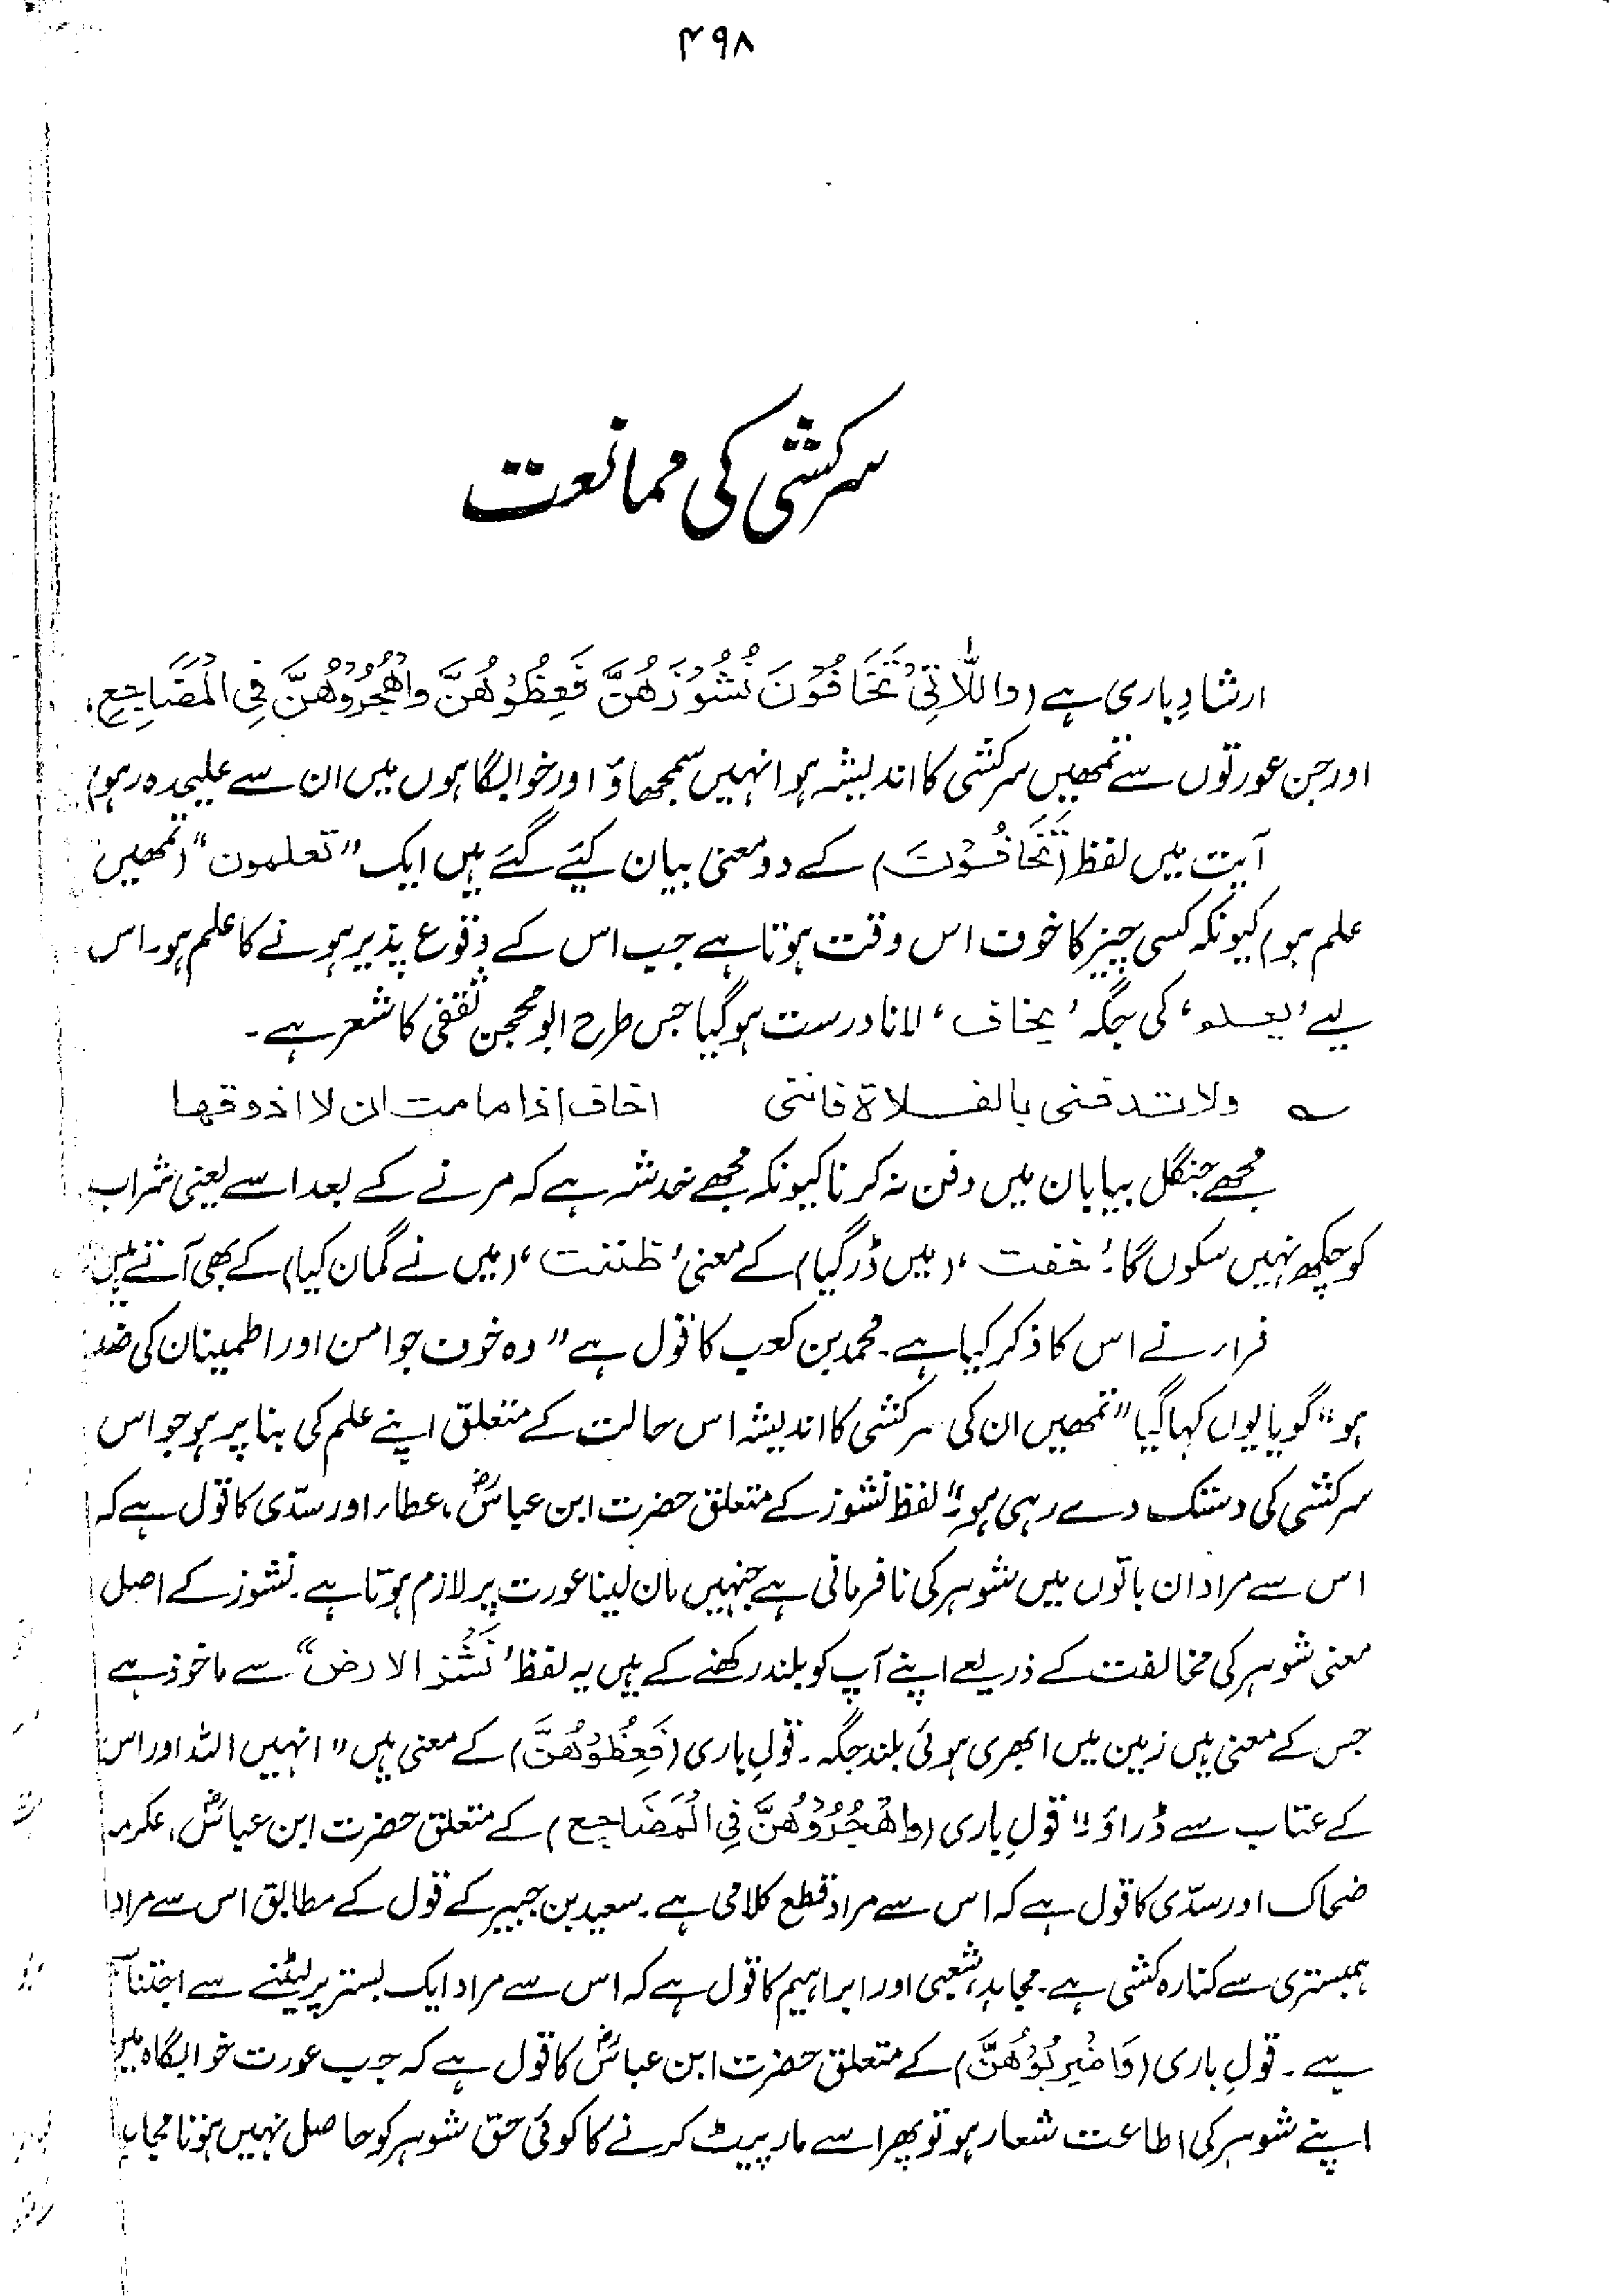 ۴۹۸
سرکشی کی ممانعت
ارشادِ باری ہے (وَاللَّاتِیْ تَخَافُوْنَ نُشُوْزَهُنَّ فَعِظُوْهُنَّ وَاهْجُرُوْهُنَّ فِی الْمَضَاجِعِ،
اور جن عورتوں سے تمھیں سرکشی کا اندیشہ ہو انہیں سمجھاؤ اور خوابگاہوں میں ان سے علیحدہ رہو)
آیت میں لفظ (تَخَافُوْنَ) کے دو معنی بیان کیئے گئے ہیں ایک "تعلمون" (تمھیں
علم ہو) کیونکہ کسی چیز کا خوف اس وقت ہوتا ہے جب اس کے وقوع پذیر ہونے کا علم ہو۔ اس
لیے 'یعلم' کی جگہ 'یخاف' لانا درست ہوگیا جس طرح ابو محجن ثقفی کا شعر ہے۔
؎ ولا تدفننی بالفلاة فاننی اخاف اذا مامت ان لا اذوقها
مجھے جنگل بیابان میں دفن نہ کرنا کیونکہ مجھے خدشہ ہے کہ مرنے کے بعد اسے یعنی شراب
کو چکھ نہیں سکوں گا۔ 'خفت' (میں ڈر گیا) کے معنی 'ظننت' (میں نے گمان کیا) کے بھی آتے ہیں
فراء نے اس کا ذکر کیا ہے۔ محمد بن کعب کا قول ہے "وہ خوف جو امن اور اطمینان کی ضد
ہو" گویا یوں کہا گیا "تمھیں ان کی سرکشی کا اندیشہ اس حالت کے متعلق اپنے علم کی بنا پر ہو جو اس
سرکشی کی دستک دے رہی ہو۔" لفظ نشوز کے متعلق حضرت ابن عباسؓ، عطاء اور سدّی کا قول ہے کہ
اس سے مراد ان باتوں میں شوہر کی نافرمانی ہے جنہیں مان لینا عورت پر لازم ہوتا ہے۔ نشوز کے اصل
معنی شوہر کی مخالفت کے ذریعے اپنے آپ کو بلند رکھنے کے ہیں یہ لفظ 'نَشْز الارض" سے ماخوذ ہے
جس کے معنی ہیں زمین میں ابھری ہوئی بلند جگہ۔ قولِ باری (فَعِظُوْهُنَّ) کے معنی ہیں "انہیں اللہ اور اس
کے عتاب سے ڈراؤ۔" قولِ باری (وَاهْجُرُوْهُنَّ فِی الْمَضَاجِعِ) کے متعلق حضرت ابن عباسؓ، عکرمہ
ضحاک اور سدّی کا قول ہے کہ اس سے مراد قطع کلامی ہے۔ سعید بن جبیر کے قول کے مطابق اس سے مراد
ہمبستری سے کنارہ کشی ہے۔ مجاہد، شعبی اور ابراہیم کا قول ہے کہ اس سے مراد ایک بستر پر لیٹنے سے اجتناب
ہے۔ قولِ باری (وَاضْرِبُوْهُنَّ) کے متعلق حضرت ابن عباسؓ کا قول ہے کہ جب عورت خوابگاہ میں
اپنے شوہر کی اطاعت شعار ہو تو پھر اسے مار پیٹ کرنے کا کوئی حق شوہر کو حاصل نہیں ہوتا مجاہد